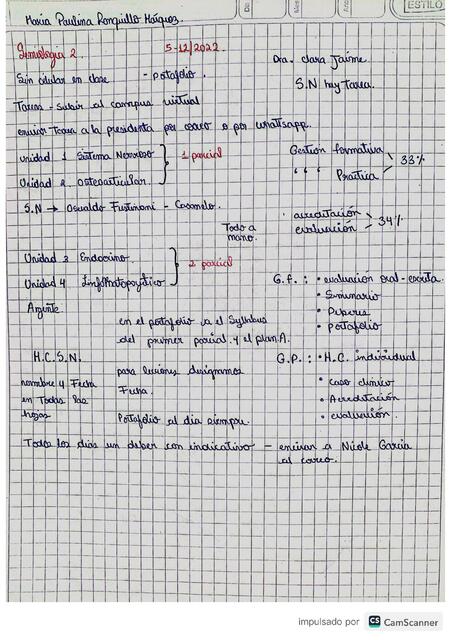 De
Mes
Año
ESTILO
Maria Paulina Ronquillo Haiquez.
Semiologia 2. 5-12/2022.
Dra. Clara Jaime.
Sin celular en clase - Portafolio.
S.N hay Tarea.
Tareas - subir al campus virtual
enviar Tarea a la presidenta por correo o por whatsapp.
Unidad 1 Sistema Nervioso
Unidad 2 Osteoarticular.
1 parcial
Gestión formativa
" " Practica
33%
S.N → Oswaldo Fustinoni -
acreditación
evaluación
34%
Todo a mano.
Unidad 3 Endocrino.
Unidad 4
2 parcial
G.f. : • evaluación oral-escrita.
• Seminario
• Deberes
• Portafolio
en el portafolio va el Syllabus
del primer parcial y el plan.A.
H.C.S.N.
nombre y Fecha
en Todas las
hojas
para lecciones
Fecha.
Portafolio al dia siempre.
G.P. : • H.C. individual
• caso clinico
• Acreditación
• evaluación.
Todos los dias un deber con indicativo - enviar a Nicole Garcia
al correo.
impulsado por CS CamScanner